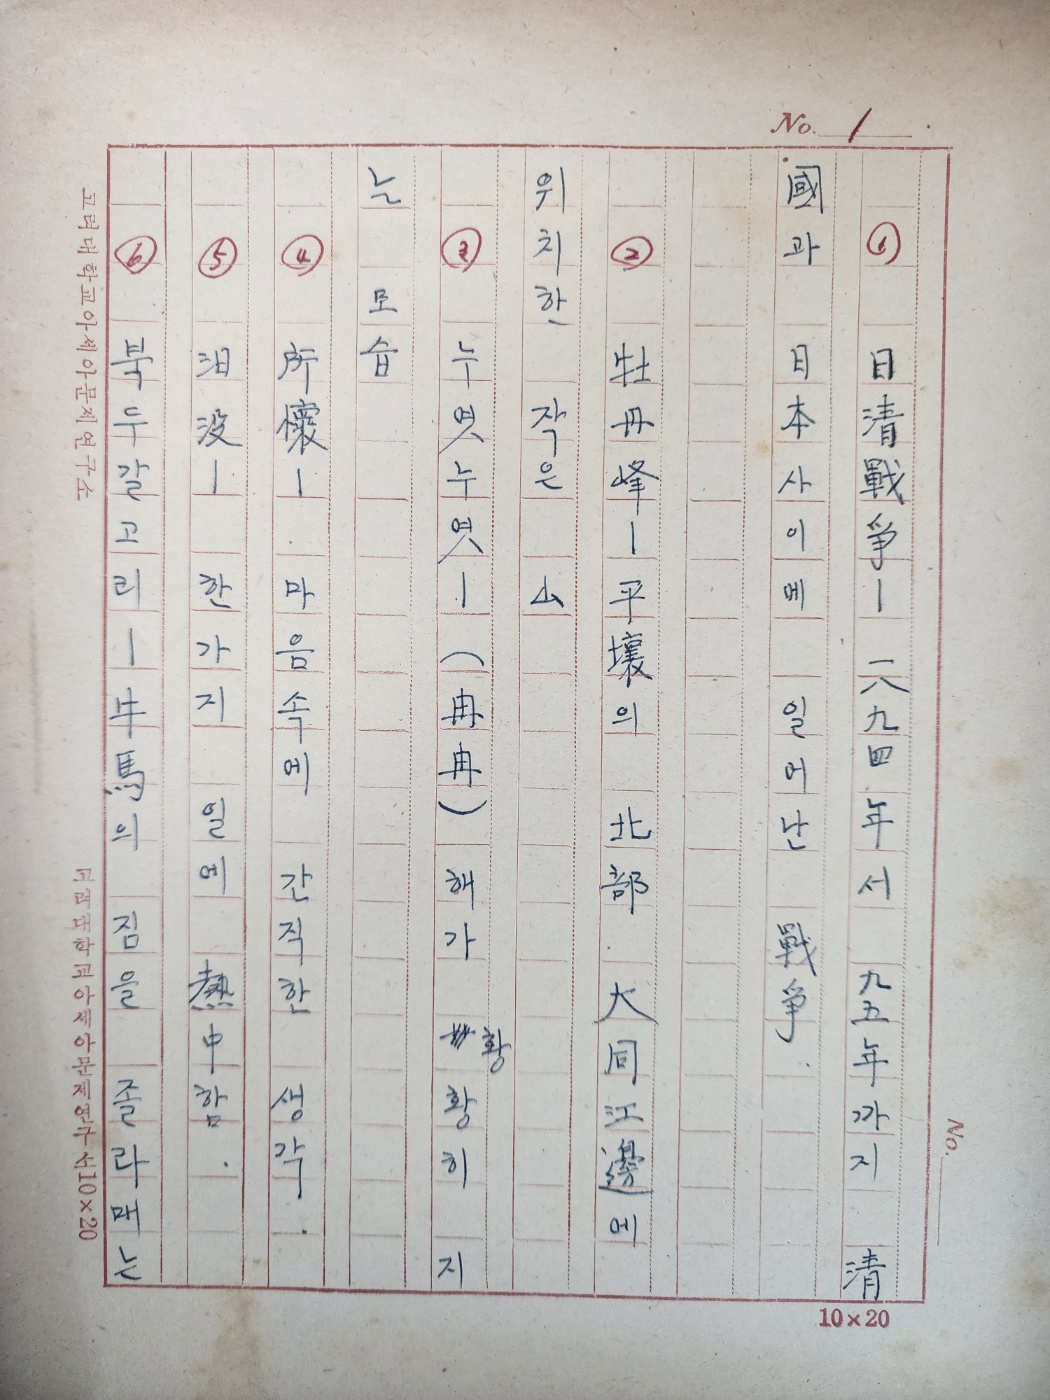 No. 1
① 日清戰爭ー 一八九四年서 九五年까지 清
國과 日本사이메 일머난 戰爭.
② 牡丹峰ー平壤의 北部 大同江邊에
위치한 작은 山
③ 누엿누엿ー(冉冉) 해가 황황히 지
는 모습
④ 所懷ー 마음속에 간직한 생각.
⑤ 汨没ー 한가지 일에 熱中함.
⑥ 북두갈고리ー牛馬의 짐을 졸라매는
고려대학교아세아문제연구소
고려대학교아세아문제연구소10×20
No.
10×20